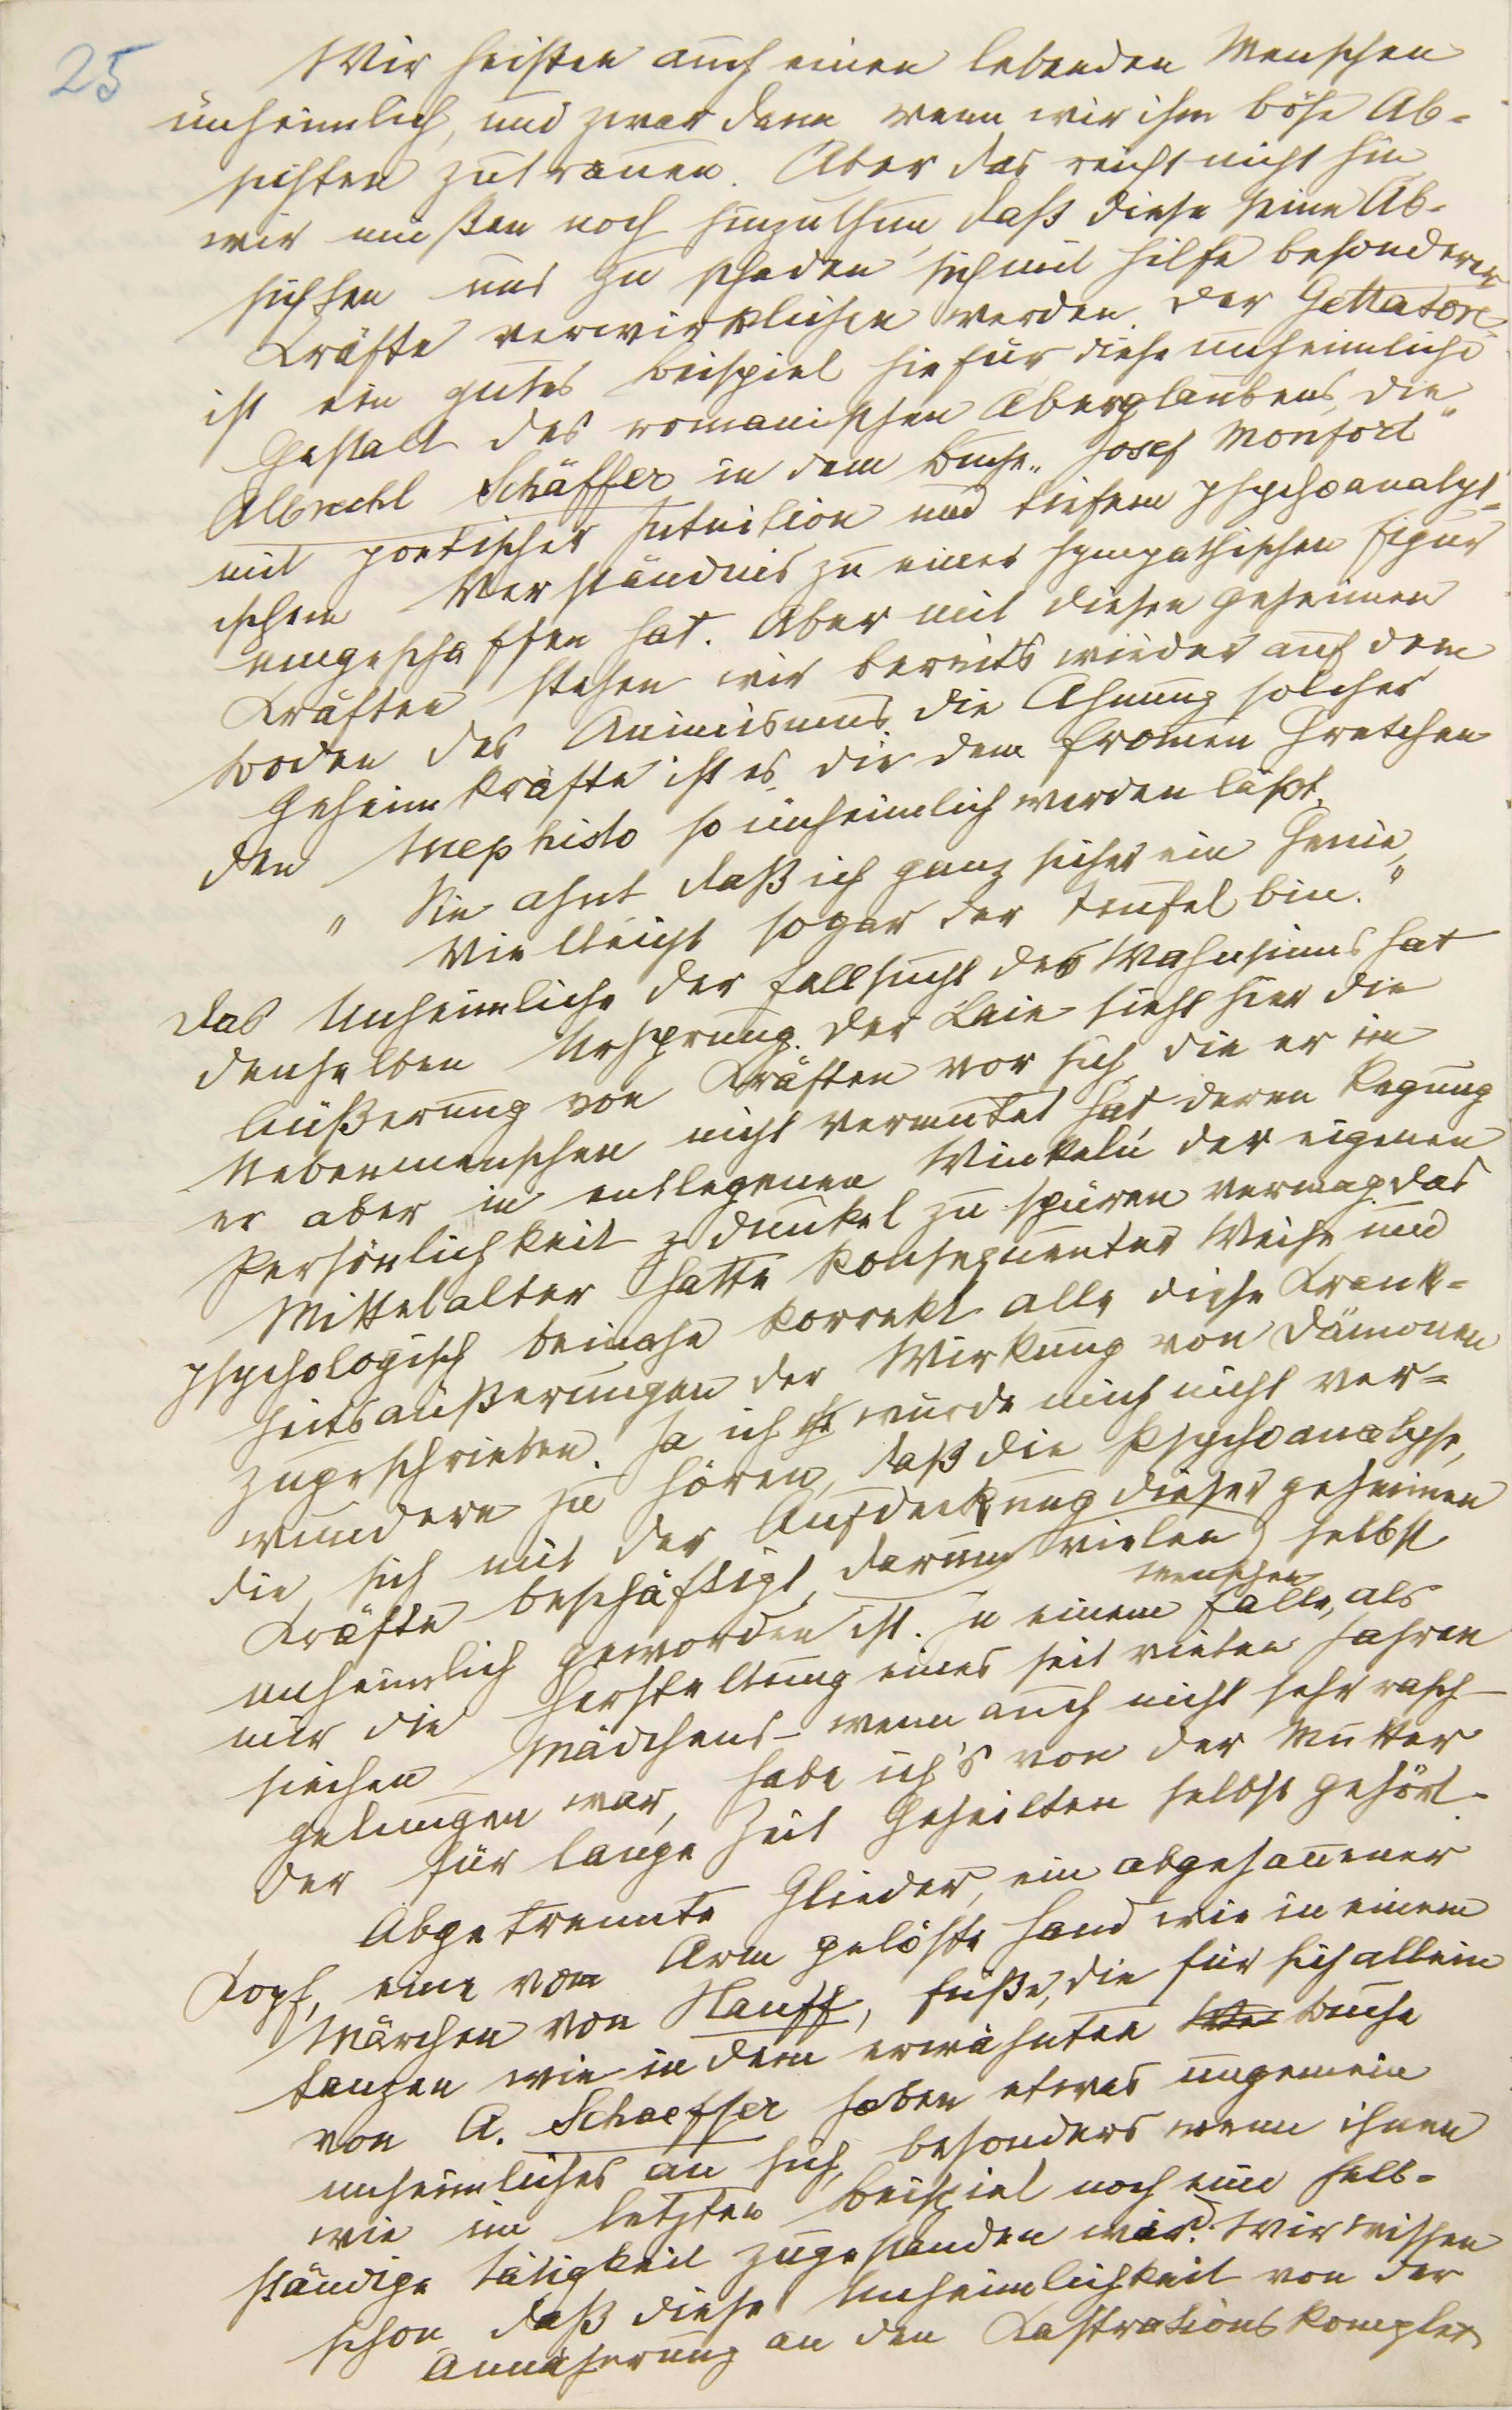 25
Wir heißen auch einen lebenden Menschen
unheimlich, und zwar dann wenn wir ihm böse Ab-
sichten zutrauen. Aber das reicht nicht hin
wir müßen noch hinzuthun, daß diese seine Ab-
sichten uns zu schaden sich mit Hilfe besonderer
Kräfte verwirklichen werden. Der Gettatore
ist ein gutes Beispiel hiefür diese unheimliche
Gestalt des romanischen Aberglaubens, die
Albrecht Schäffer in dem Buche „Josef Monfort“
mit poetischer Intuition und tiefem psychoanalyt-
ischem Verständnis zu einer sympathischen Figur
umgeschaffen hat. Aber mit diesen geheimen
Kräften stehen wir bereits wieder auf dem
Boden des Animismus. Die Ahnung solcher
Geheimkräfte ist es, die dem frommen Gretchen
den Mephisto so unheimlich werden läßt.
„Sie ahnt daß ich ganz sicher ein Genie,
Vielleicht sogar der Teufel bin.“
Das Unheimliche der Fallsucht des Wahnsinns hat
denselben Ursprung. Der Laie sieht hier die
Äußerung von Kräften vor sich, die er im
Nebenmenschen nicht vermutet hat, deren Regung
er aber in entlegenen Winkeln der eigenen
Persönlichkeit dunkel zu spüren vermag. Das
Mittelalter hatte konsequenter Weise und
psychologisch beinahe korrekt alle diese Krank-
heitsäußerungen der Wirkung von Dämonen
zugeschrieben. Ja ich würde mich nicht ver-
wundern zu hören, daß die Psychoanalyse,
die sich mit der Aufdeckung dieser geheimen
Kräfte beschäftigt, darum vielen selbst
Menschen
unheimlich geworden ist. In einem Falle, als
mir die Herstellung eines seit vielen Jahren
siechen Mädchens – wenn auch nicht sehr rasch –
gelungen war, habe ich's von der Mutter
der für lange Zeit Geheilten selbst gehört.
Abgetrennte Glieder, ein abgehauener
Kopf, eine vom Arm gelöste Hand wie in einem
Märchen von Hauff, Füße, die für sich allein
tanzen wie in dem erwähnten Buche
von A. Schaeffer haben etwas ungemein
unheimliches an sich, besonders wenn ihnen
wie im letzten Beispiel noch eine selb-
ständige Tätigkeit zugestanden wird. Wir wissen
schon daß diese Unheimlichkeit von der
Annäherung an den Kastrationskomplex